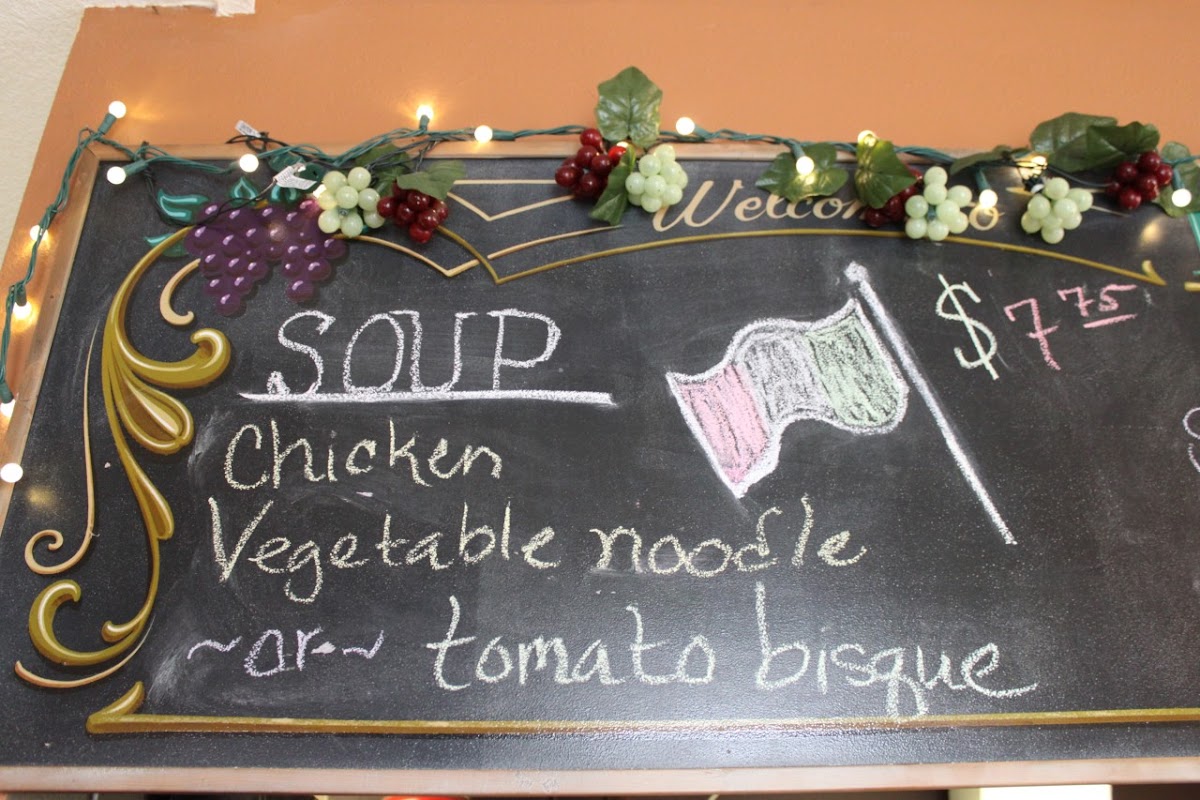 Welcome to
SOUP
$7.75
Chicken
Vegetable noodle
~or~ tomato bisque